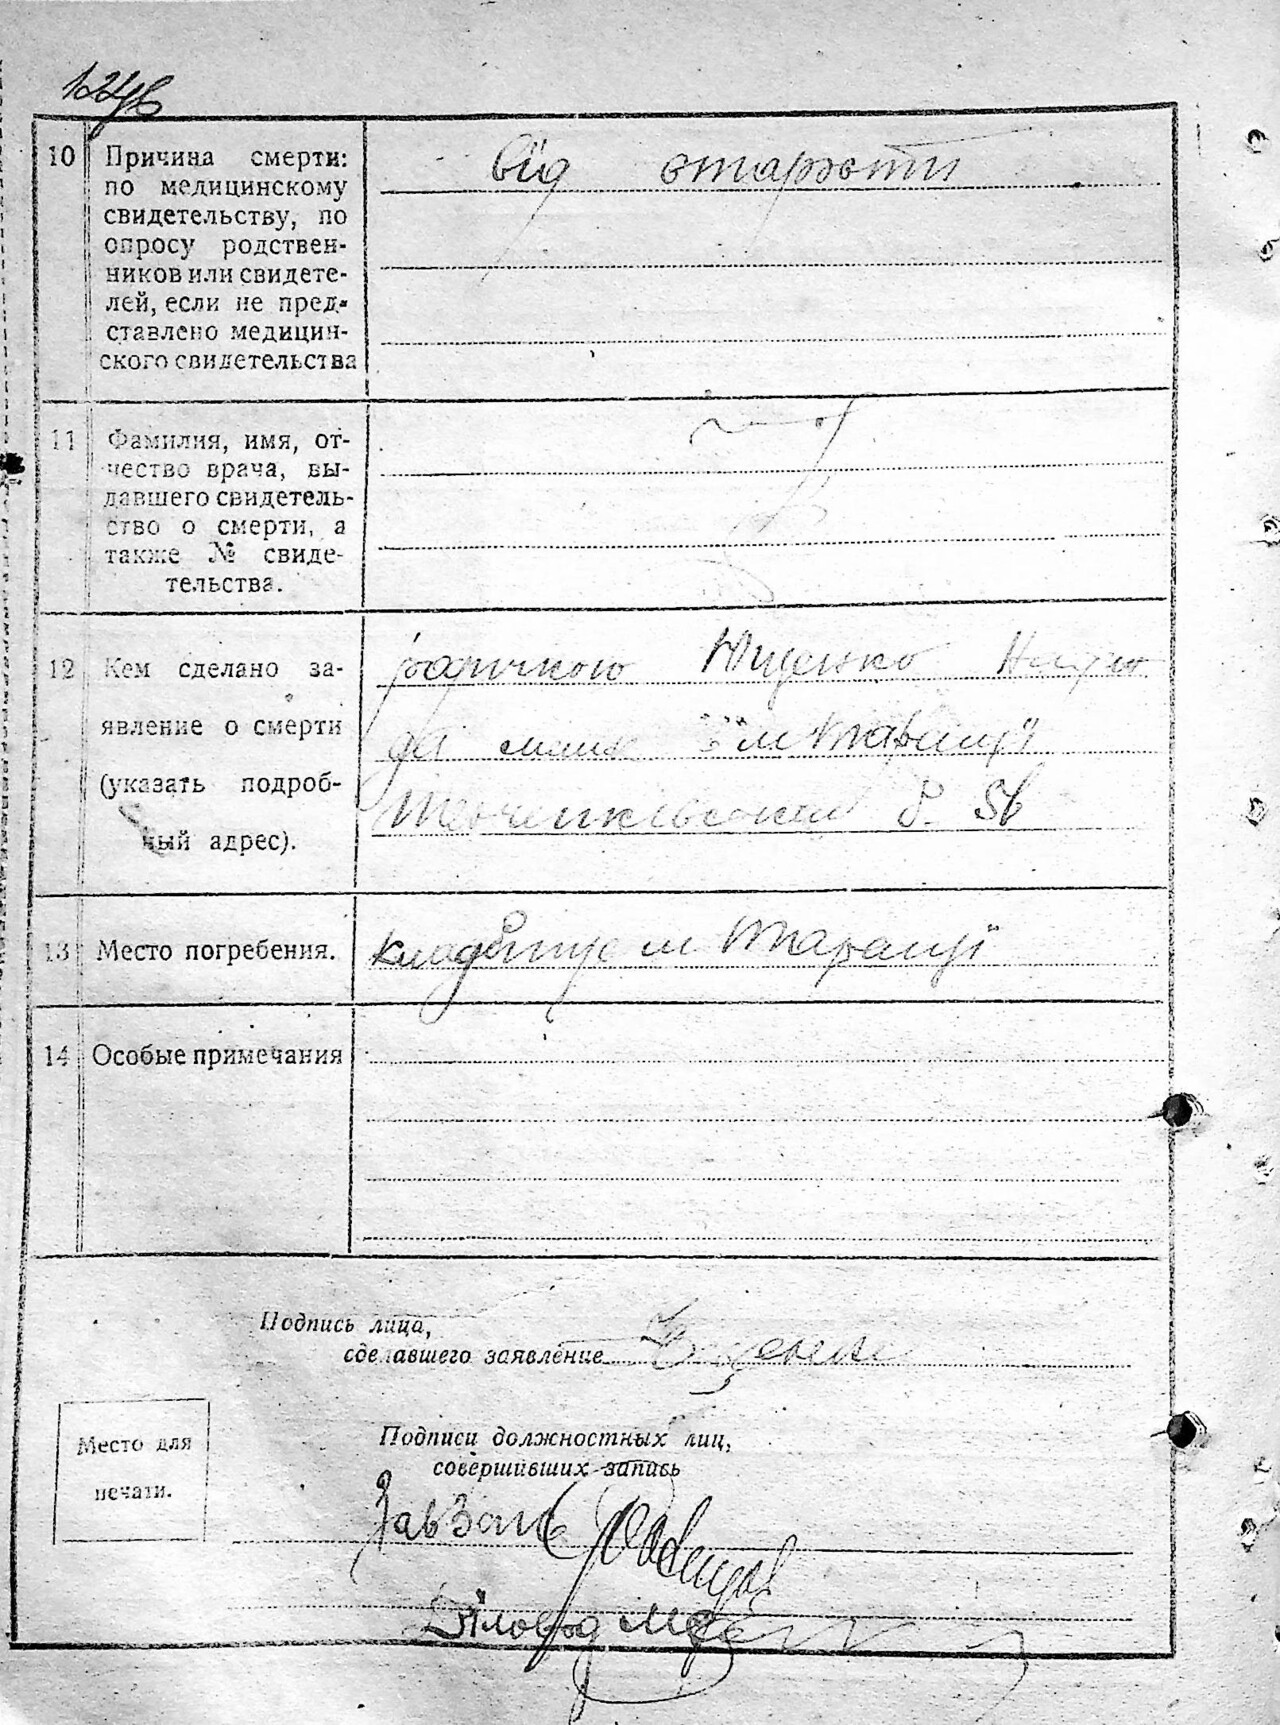 10 Причина смерти:
по медицинскому
свидетельству, по
опросу родствен-
ников или свидете-
лей, если не пред-
ставлено медицин-
ского свидетельства
від старости
11 Фамилия, имя, от-
чество врача, вы-
давшего свидетель-
ство о смерти, а
также № свиде-
тельства.
12 Кем сделано за-
явление о смерти
(указать подроб-
ный адрес).
родичкою Ющенко
м Таращі
13 Место погребения.
кладбище м Таращі
14 Особые примечания
Подпись лица,
сделавшего заявление
Место для
печати.
Подписи должностных лиц,
совершивших запись
Діловод